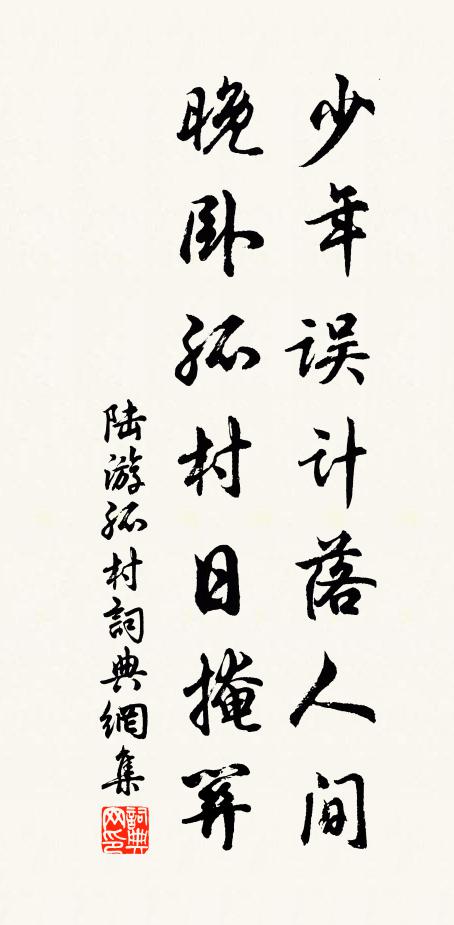 少年误计落人间
晚卧孤村日掩关
陆游孤村詞典網集
詞典网印